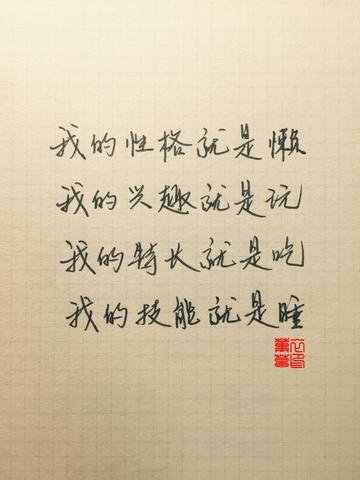 我的性格就是懒
我的兴趣就是玩
我的特长就是吃
我的技能就是睡